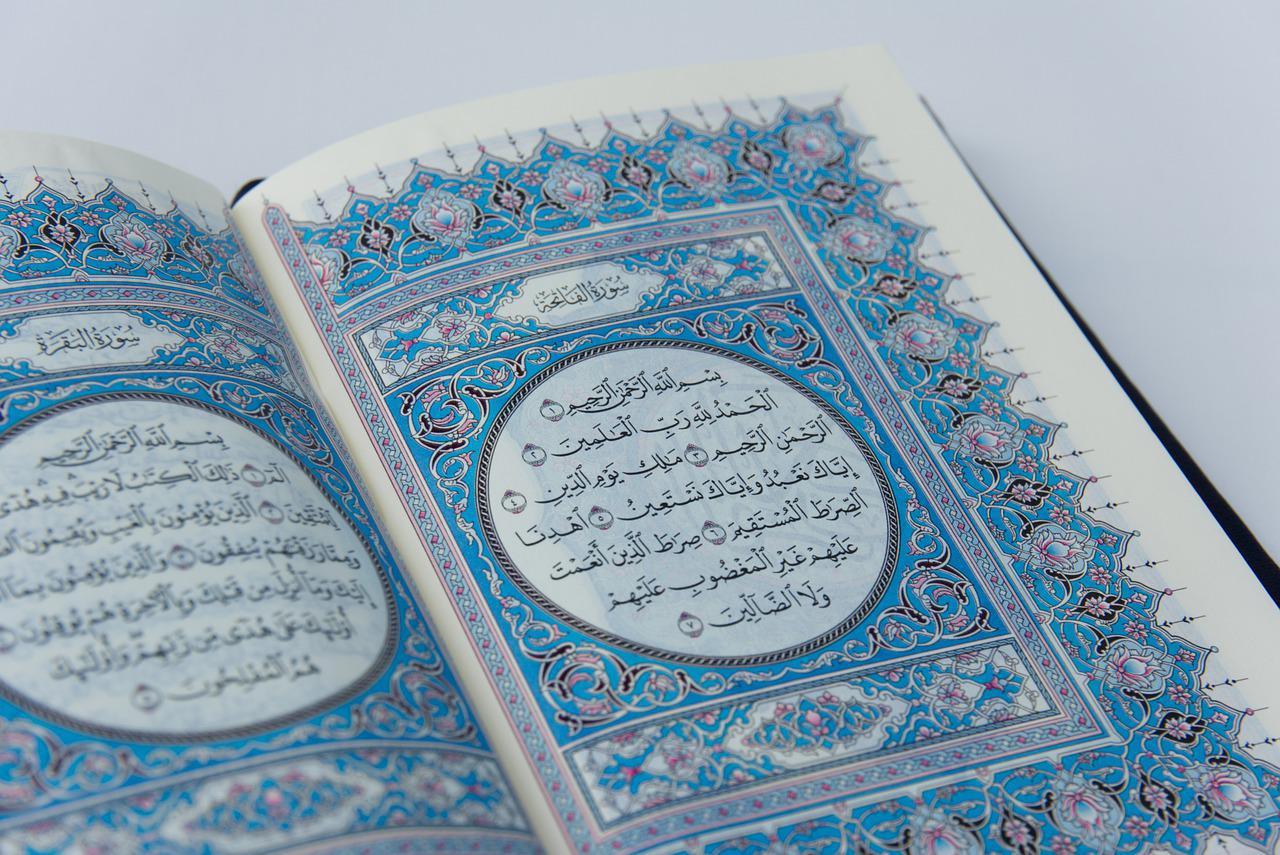 سُورَةُ الفَاتِحَةِ
بِسۡمِ ٱللَّهِ ٱلرَّحۡمَٰنِ ٱلرَّحِيمِ ١
ٱلۡحَمۡدُ لِلَّهِ رَبِّ ٱلۡعَٰلَمِينَ ٢
ٱلرَّحۡمَٰنِ ٱلرَّحِيمِ ٣ مَٰلِكِ يَوۡمِ ٱلدِّينِ ٤
إِيَّاكَ نَعۡبُدُ وَإِيَّاكَ نَسۡتَعِينُ ٥ ٱهۡدِنَا
ٱلصِّرَٰطَ ٱلۡمُسۡتَقِيمَ ٦ صِرَٰطَ ٱلَّذِينَ أَنۡعَمۡتَ
عَلَيۡهِمۡ غَيۡرِ ٱلۡمَغۡضُوبِ عَلَيۡهِمۡ
وَلَا ٱلضَّآلِّينَ ٧
سُورَةُ البَقَرَةِ
بِسۡمِ ٱللَّهِ ٱلرَّحۡمَٰنِ ٱلرَّحِيمِ
الٓمٓ ١ ذَٰلِكَ ٱلۡكِتَٰبُ لَا رَيۡبَۛ فِيهِۛ هُدٗى
لِّلۡمُتَّقِينَ ٢ ٱلَّذِينَ يُؤۡمِنُونَ بِٱلۡغَيۡبِ وَيُقِيمُونَ
وَمِمَّا رَزَقۡنَٰهُمۡ يُنفِقُونَ ٣ وَٱلَّذِينَ يُؤۡمِنُونَ بِمَآ
إِلَيۡكَ وَمَآ أُنزِلَ مِن قَبۡلِكَ وَبِٱلۡأٓخِرَةِ هُمۡ يُوقِنُونَ
أُوْلَٰٓئِكَ عَلَىٰ هُدٗى مِّن رَّبِّهِمۡۖ وَأُوْلَٰٓئِكَ
هُمُ ٱلۡمُفۡلِحُونَ ٥